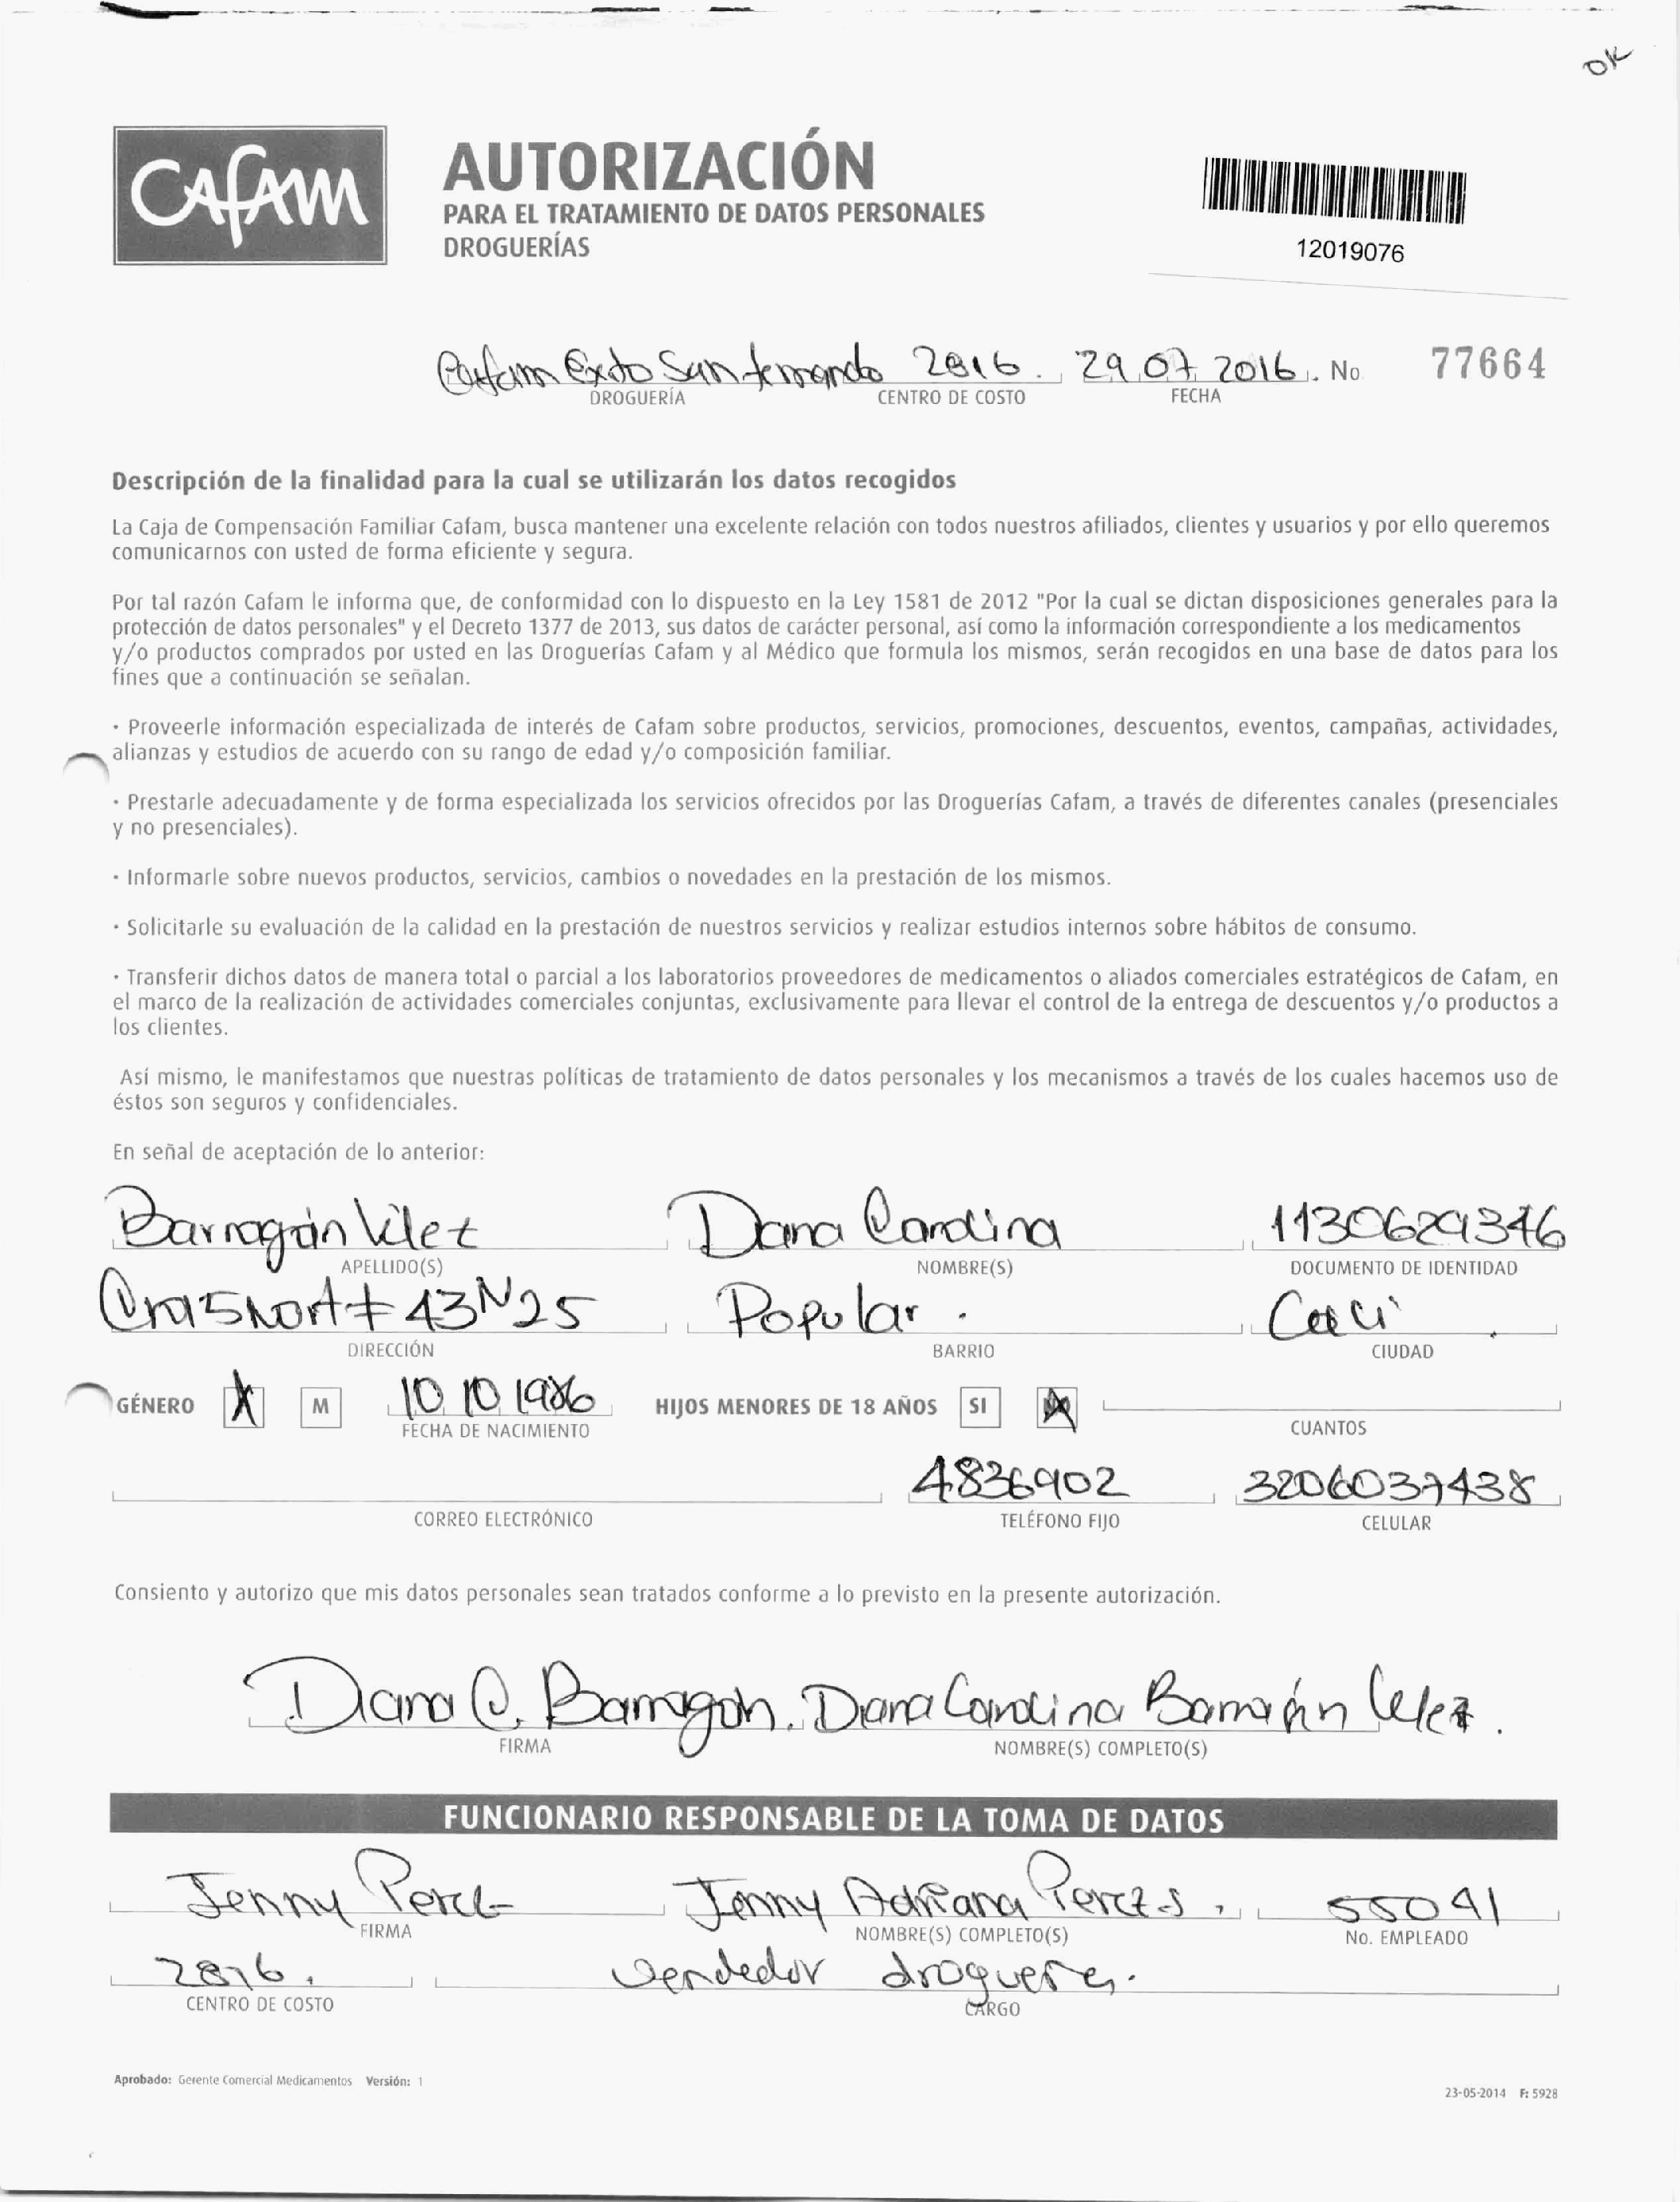 OK
CAFAM
AUTORIZACIÓN
PARA EL TRATAMIENTO DE DATOS PERSONALES
DROGUERÍAS
12019076
Cafam Exito San fernando 2816. 29 07 2016. No 77664
DROGUERÍA CENTRO DE COSTO FECHA
Descripción de la finalidad para la cual se utilizarán los datos recogidos
La Caja de Compensación Familiar Cafam, busca mantener una excelente relación con todos nuestros afiliados, clientes y usuarios y por ello queremos
comunicarnos con usted de forma eficiente y segura.
Por tal razón Cafam le informa que, de conformidad con lo dispuesto en la Ley 1581 de 2012 "Por la cual se dictan disposiciones generales para la
protección de datos personales" y el Decreto 1377 de 2013, sus datos de carácter personal, así como la información correspondiente a los medicamentos
y/o productos comprados por usted en las Droguerías Cafam y al Médico que formula los mismos, serán recogidos en una base de datos para los
fines que a continuación se señalan.
· Proveerle información especializada de interés de Cafam sobre productos, servicios, promociones, descuentos, eventos, campañas, actividades,
alianzas y estudios de acuerdo con su rango de edad y/o composición familiar.
· Prestarle adecuadamente y de forma especializada los servicios ofrecidos por las Droguerías Cafam, a través de diferentes canales (presenciales
y no presenciales).
· Informarle sobre nuevos productos, servicios, cambios o novedades en la prestación de los mismos.
· Solicitarle su evaluación de la calidad en la prestación de nuestros servicios y realizar estudios internos sobre hábitos de consumo.
· Transferir dichos datos de manera total o parcial a los laboratorios proveedores de medicamentos o aliados comerciales estratégicos de Cafam, en
el marco de la realización de actividades comerciales conjuntas, exclusivamente para llevar el control de la entrega de descuentos y/o productos a
los clientes.
Así mismo, le manifestamos que nuestras políticas de tratamiento de datos personales y los mecanismos a través de los cuales hacemos uso de
éstos son seguros y confidenciales.
En señal de aceptación de lo anterior:
Barragán Vélez Diana Carolina 1130629346
APELLIDO(S) NOMBRE(S) DOCUMENTO DE IDENTIDAD
Cra 5 Nort # 43N25 Popular. Cali
DIRECCIÓN BARRIO CIUDAD
GÉNERO X M 10 10 1986 HIJOS MENORES DE 18 AÑOS SI X
FECHA DE NACIMIENTO CUANTOS
4836902 3206037438
CORREO ELECTRÓNICO TELÉFONO FIJO CELULAR
Consiento y autorizo que mis datos personales sean tratados conforme a lo previsto en la presente autorización.
Diana C. Barragán. Diana Carolina Barragán Velez.
FIRMA NOMBRE(S) COMPLETO(S)
FUNCIONARIO RESPONSABLE DE LA TOMA DE DATOS
Jenny Perez Jenny Adriana Perez S. 55091
FIRMA NOMBRE(S) COMPLETO(S) No. EMPLEADO
2816. Vendedor
CENTRO DE COSTO CARGO
Aprobado: Gerente Comercial Medicamentos Versión: 1
23-05-2014 F: 5928